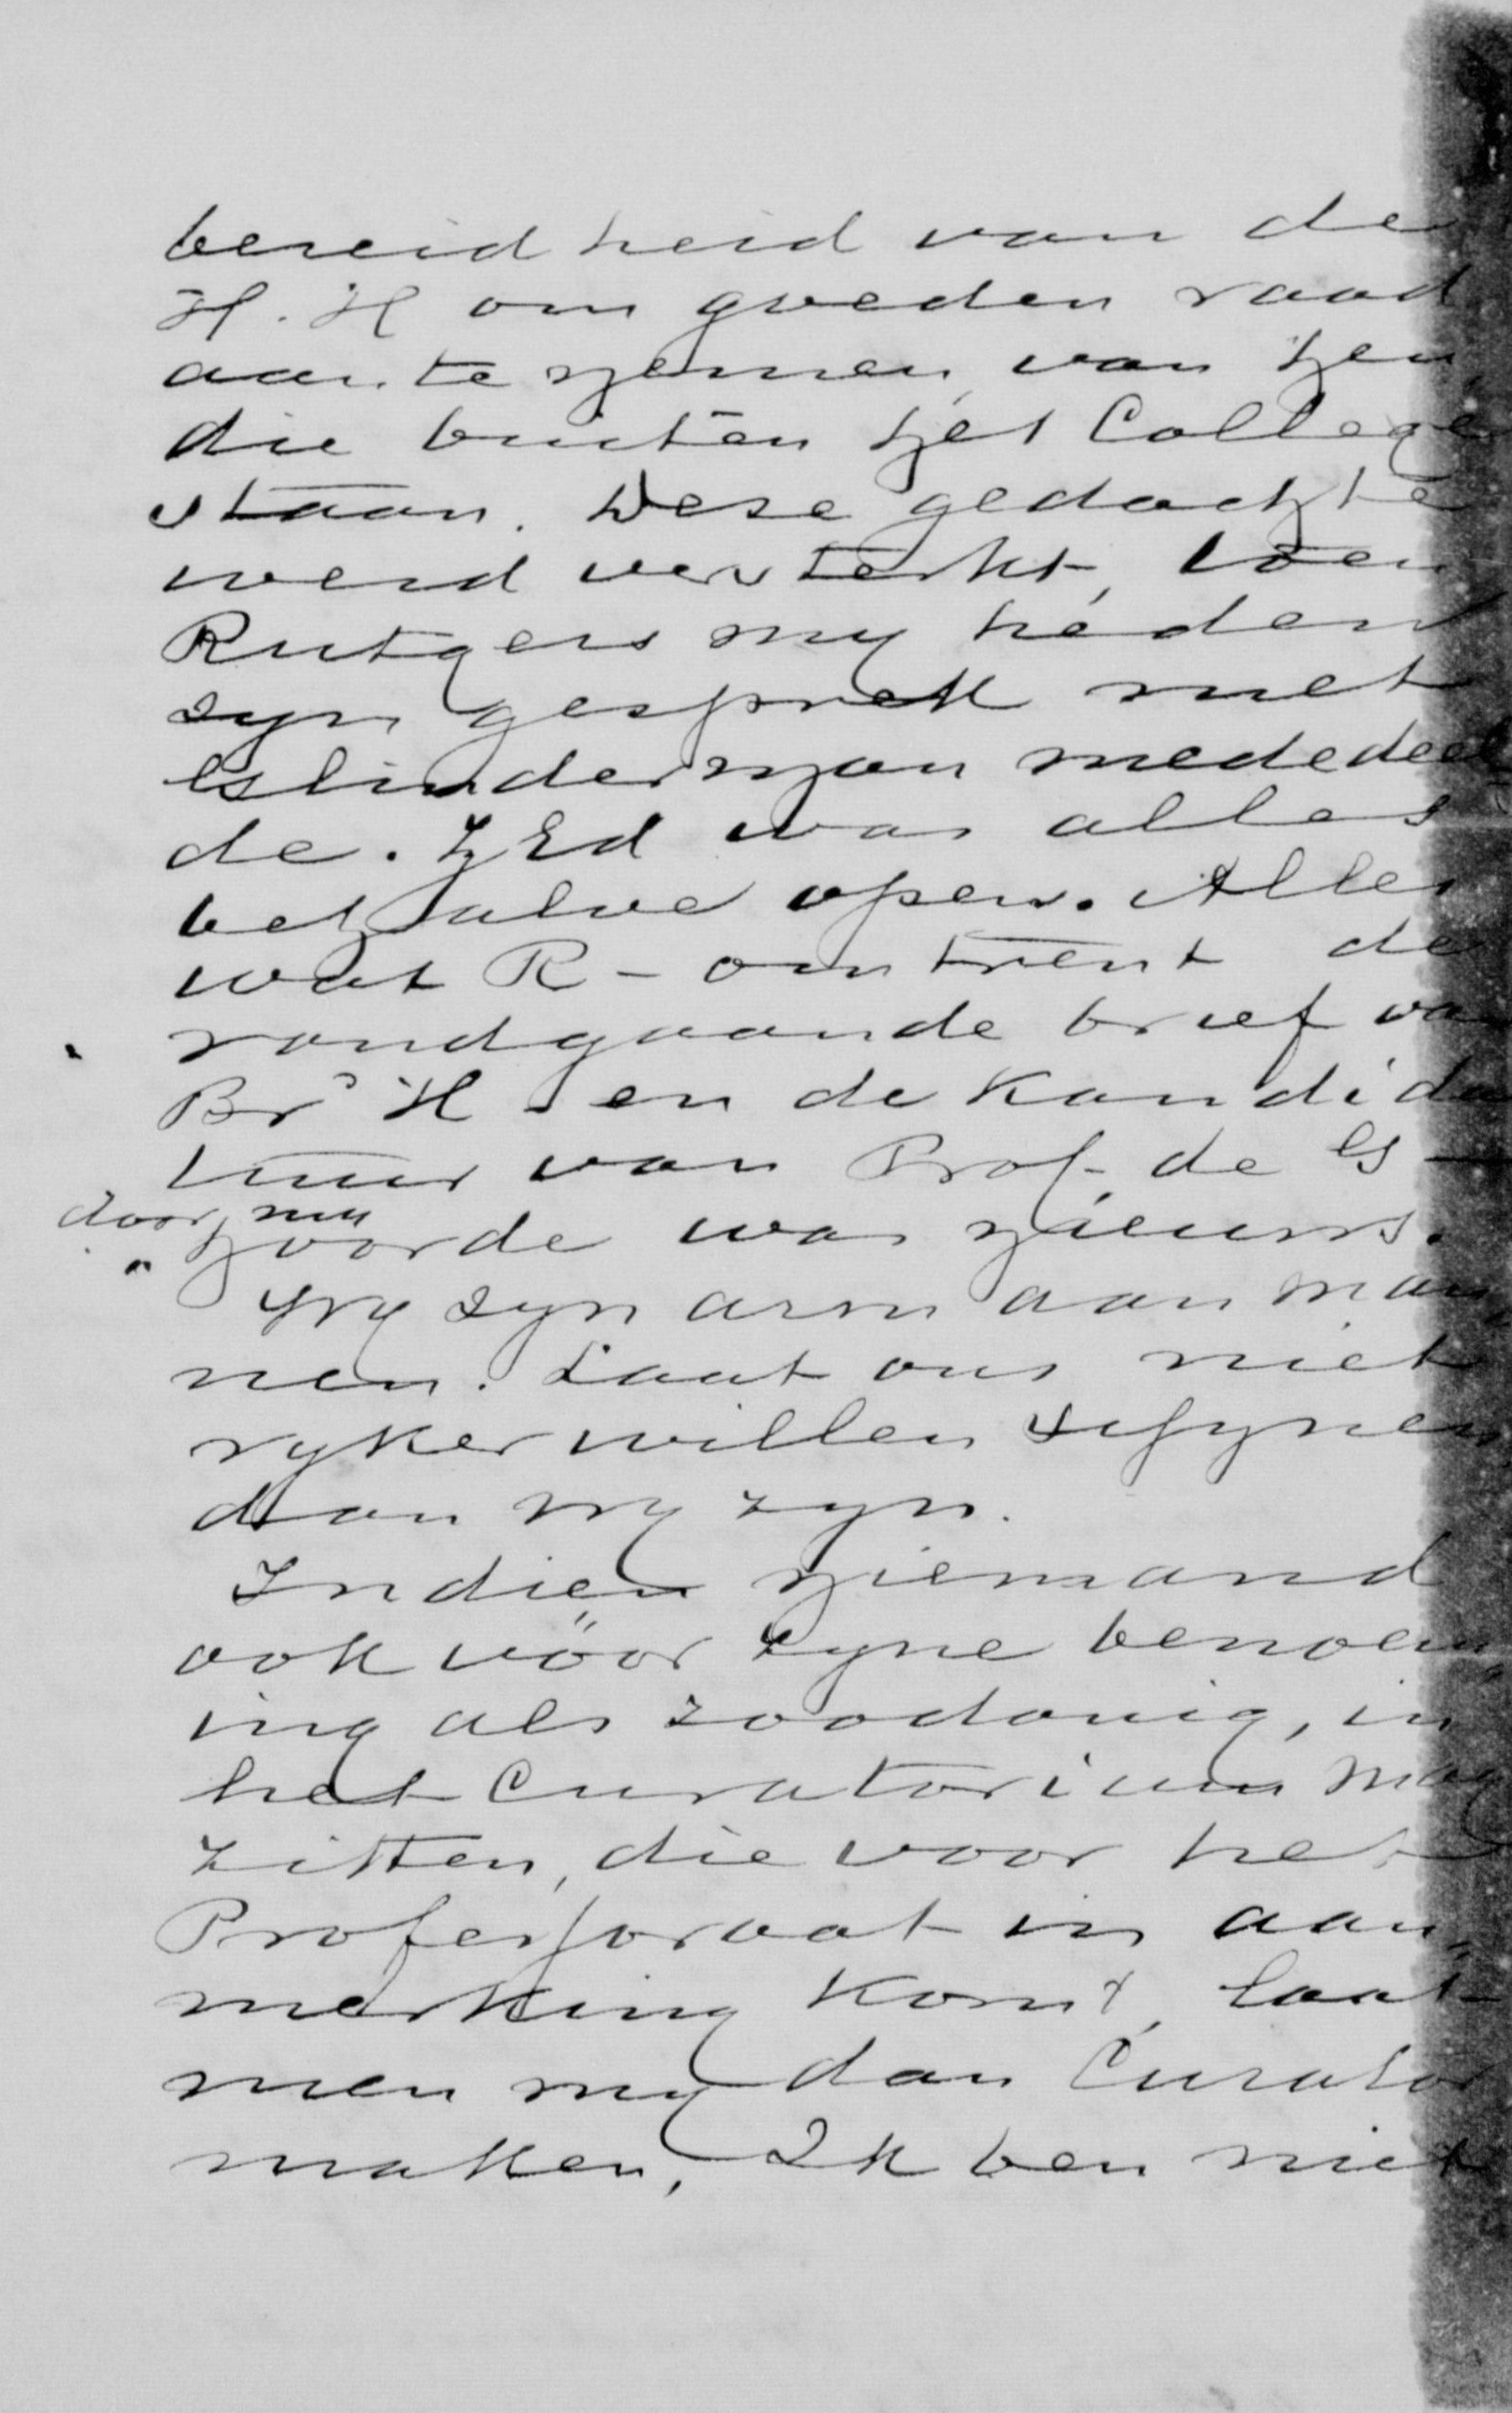 bereidheid van de
H. H om goeden raad
aan te nemen van hen
die buiten het College
staan. Deze gedachte
werd versterkt, toen
Rutgers my heden
zyn gesprek met
Gslinderman mededeel
de. ZEd was alles
behalve open. Alles
wat R - omtrent de
rondgaande brief va
Br H - en de Kandida
tuur van Prof. de G -
door my
hoorde was nieuws.
Wy zyn arm aan man
nen. Laat ons niet
ryker willen schynen
dan wy zyn.
Indien niemand
ook vóór zyne benoem
ing als zoodanig, in
het Curatorium mag
zitten, die voor het
Professoraat in aan
merking komt, laat
men my dan Curator
maken, Ik ben niet